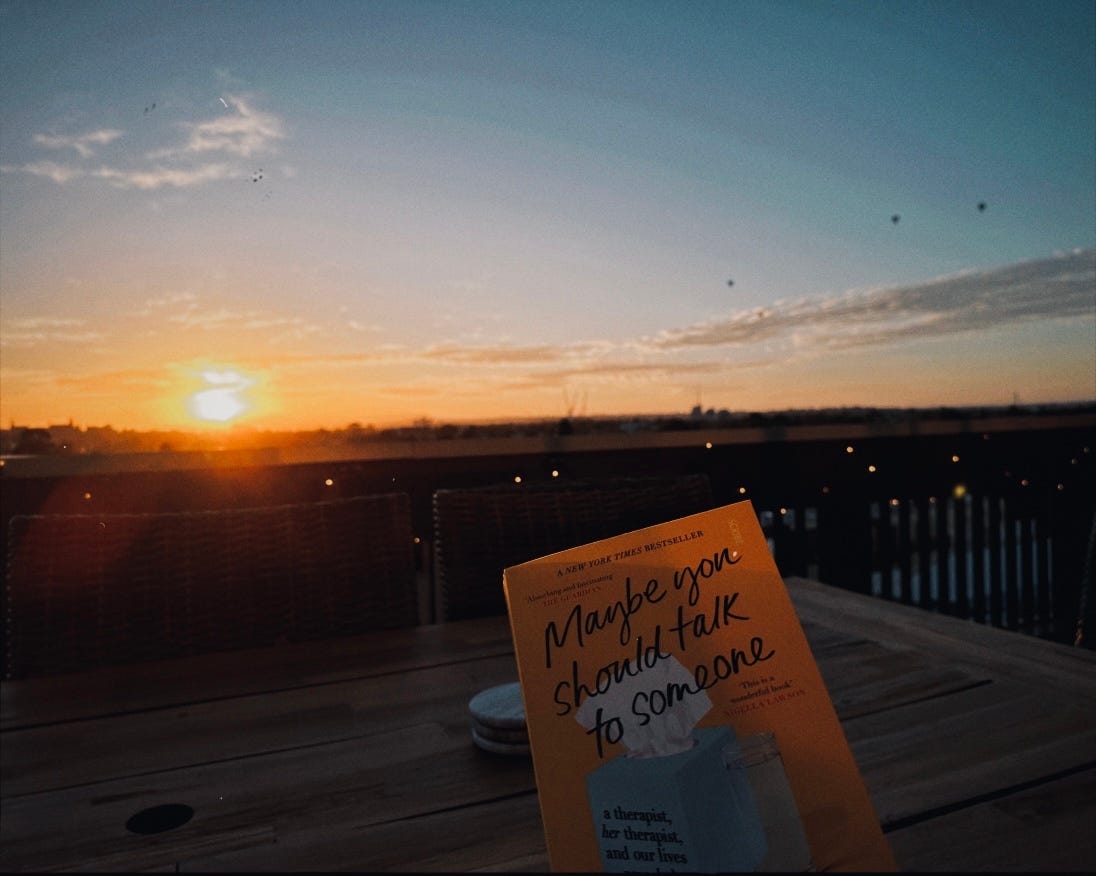 A NEW YORK TIMES BESTSELLER
"Absorbing and fascinating"
THE GUARDIAN
Maybe you
should talk
to someone
"This is a
wonderful book"
NIGELLA LAWSON
a therapist,
her therapist,
and our lives